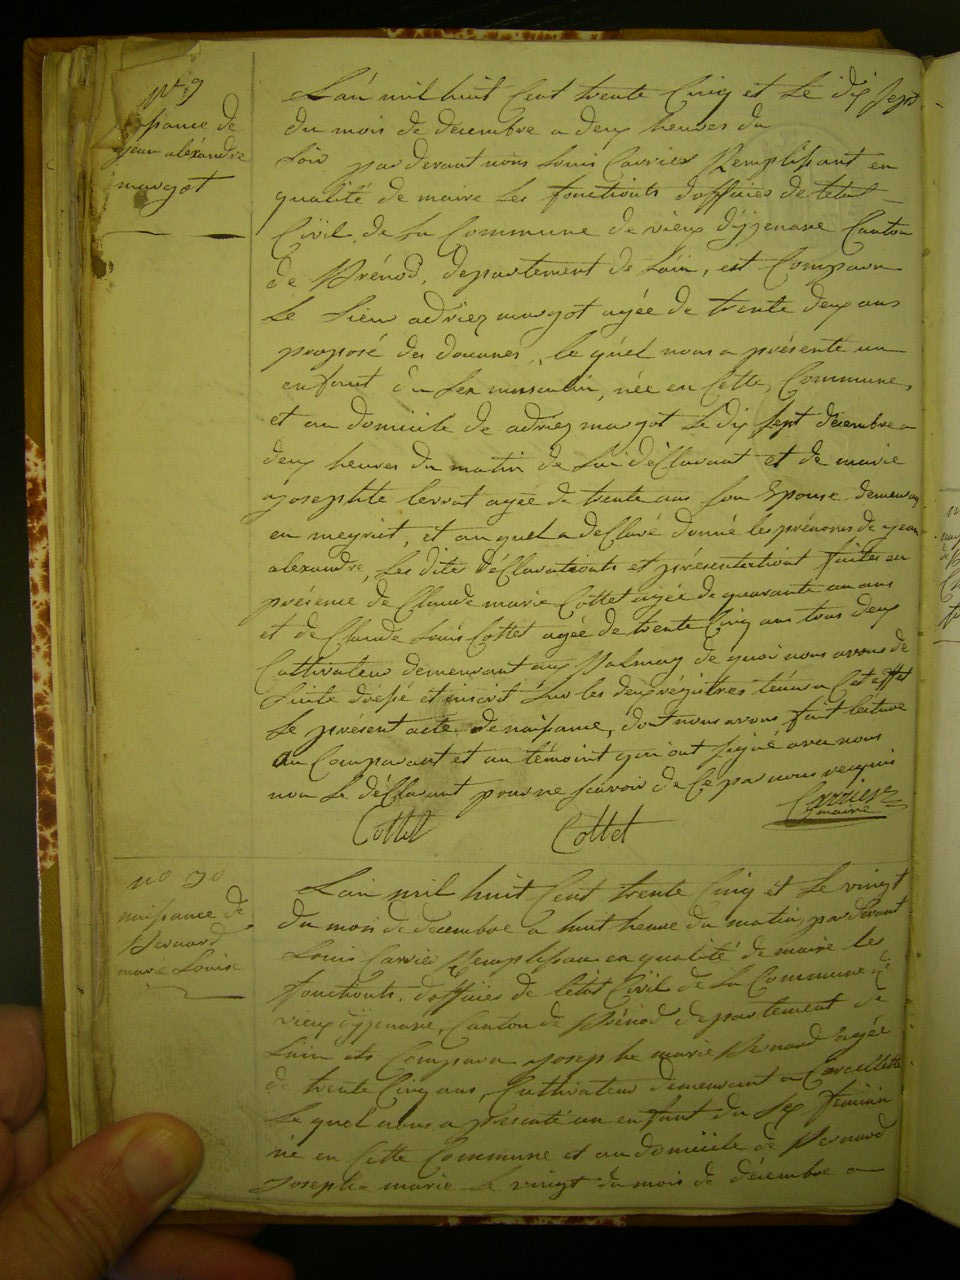 N° 9
naissance de
jean aléxandre
margot
L'an mil huit Cent trente Cinq et Le dix sept
du mois de decembre a deux heures du
Soir par devant nous Louis Carrier Remplissant en
qualité de maire Les fonctionts d'officier de letat
Civil, de La Commune de vieux d'yzenave Canton
de Brénod, departement de Lain, est Comparu
Le Sieur adriez margot agée de trente deux ans
proposé des douanes, le quel nous a présenté un
enfant du Sex masculin, née en Cette Commune,
et au domicile de adriez margot Le dix sept décembre a
deux heures du matin de Lui déClarant et de marie
josephte agée de trente ans Son Epouse demeurant
en meyriat, et au quel a déClaré donné les prénoms de jean
alexandre, Les dites déClarationts et présentationt faites en
présence de Claude marie Cottet agée de quarante un ans
et de Claude Louis Cottet agée de trente Cinq ans tous deux
Cultivateur demeurant au Balmay de quoi nous avons de
Suite dressé et inscrit Sur les deux régistres tenus a Cet effet
Le présent acte de naissance, dont nous avons fait léiture
au Comparant et au témoint qui ont Signé avec nous
non Le déClarant pour ne Savoir de Ce par nous requis
Cottet Cottet Carrier
maire
n° 10
naissance de
Bernard
marie Louise
Lain mil huit Cent trente Cinq et Le vingt
du mois de decembre a huit heure du matin, par devant
Louis Carrier Remplissan en qualité de maire les
fonctionts d'officier de létat Civil de La Commune de
vieux d'yzenave, Canton de Brénod département de
Lain est Comparu josephe marie Bernard agée
de trente Cinq ans, Cultivateur demeurant a Corcellette
Le quel nous a présenté un enfant du Sex feminin
né en Cette Commune et au domicile de Bernard
Josephe marie Le vingt du mois de décembre a